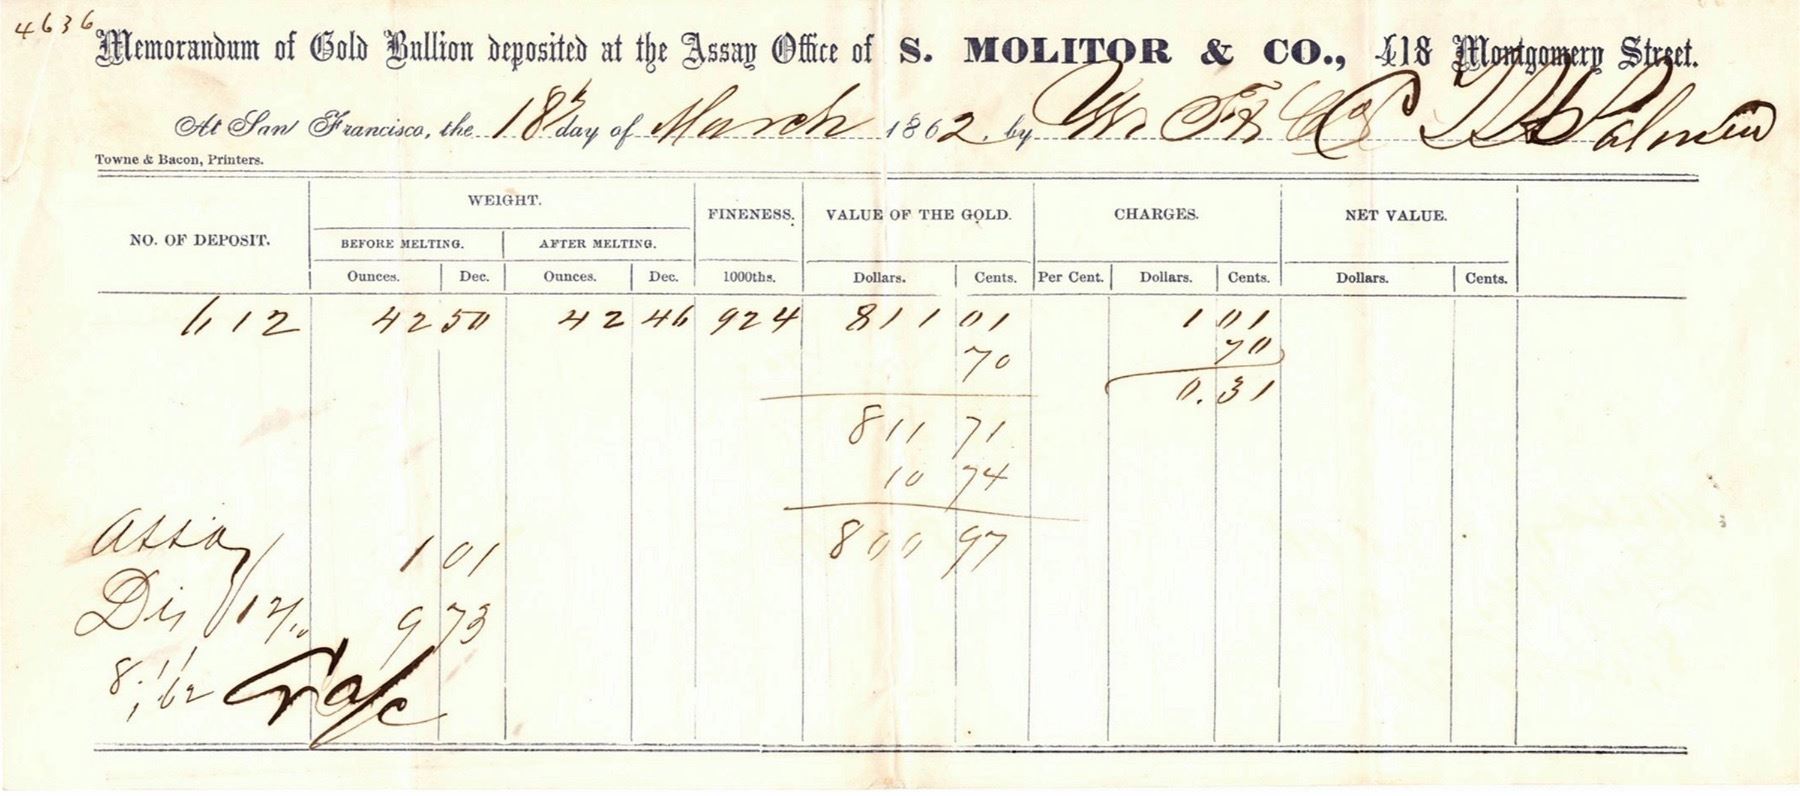 4636
Memorandum of Gold Bullion deposited at the Assay Office of S. MOLITOR & CO., 418 Montgomery Street.
At San Francisco, the 18th day of March 1862, by W. F. & Co
Towne & Bacon, Printers.
NO. OF DEPOSIT. WEIGHT. FINENESS. VALUE OF THE GOLD. CHARGES. NET VALUE.
BEFORE MELTING. AFTER MELTING.
Ounces. Dec. Ounces. Dec. 1000ths. Dollars. Cents. Per Cent. Dollars. Cents. Dollars. Cents.
612 42 50 42 46 924 811 01 1 01
70 70
0.31
811 71
10 74
800 97
Assay 1 01
Dis 9 73